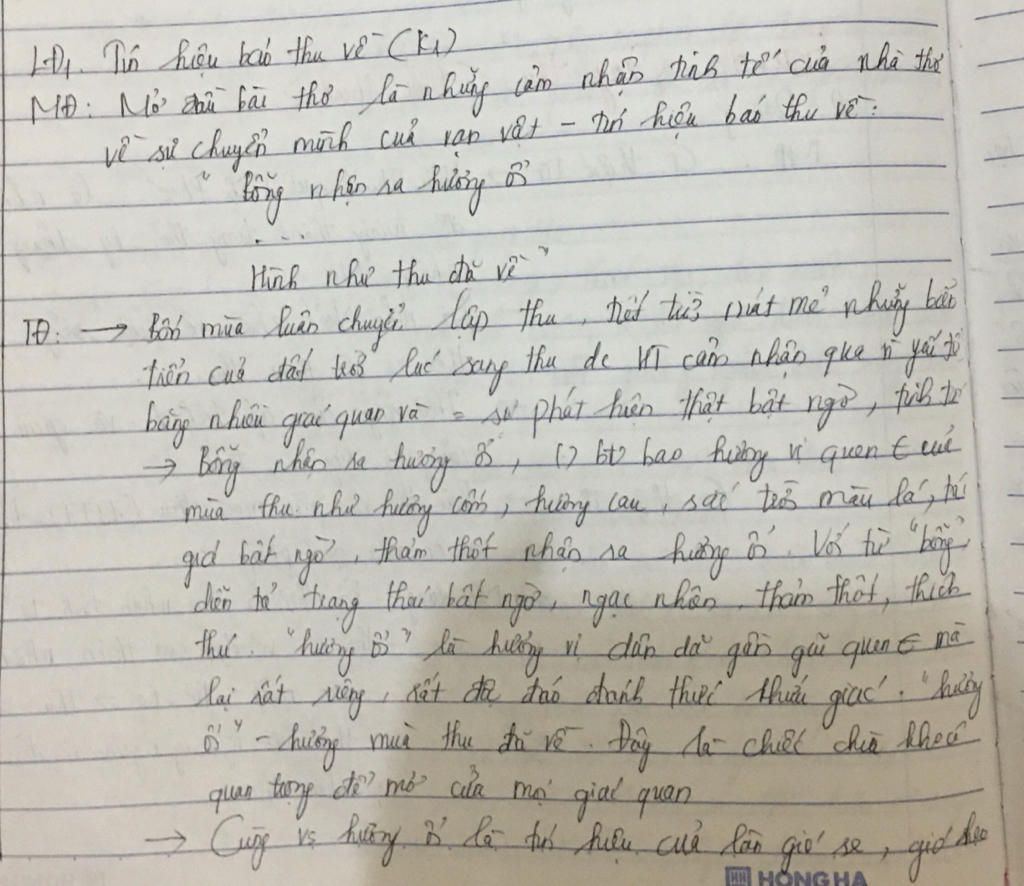 LĐ1. Tín hiệu báo thu về (K1)
MĐ: Mở đầu bài thơ là những cảm nhận tinh tế của nhà thơ
về sự chuyển mình của vạn vật - tín hiệu báo thu về:
" Bỗng nhận ra hương ổi
....
Hình như thu đã về "
TĐ: → Bốn mùa luân chuyển, lập thu, tiết trời mát mẻ những biến
chuyển của đất trời lúc sang thu đc HT cảm nhận qua n` yếu tố
bằng nhiều giác quan và = sự phát hiện thật bất ngờ, tinh tế
→ Bỗng nhận ra hương ổi, () bao hương vị quen € của
mùa thu như hương cốm, hương cau, sắc trời màu lá, tác
giả bất ngờ, thảng thốt nhận ra hương ổi. Với từ "bỗng"
diễn tả trạng thái bất ngờ, ngạc nhiên, thảng thốt, thích
thú. "hương ổi" là hương vị dân dã gần gũi quen € mà
lại rất riêng, rất độc đáo đánh thức khứu giác. "hương
ổi" - hương mùa thu đã về. Đây là chiếc chìa khoá
quan trọng để mở cửa mọi giác quan
→ Cùng vs hương ổi là tín hiệu của làn gió se, gió heo
HH HONG HA